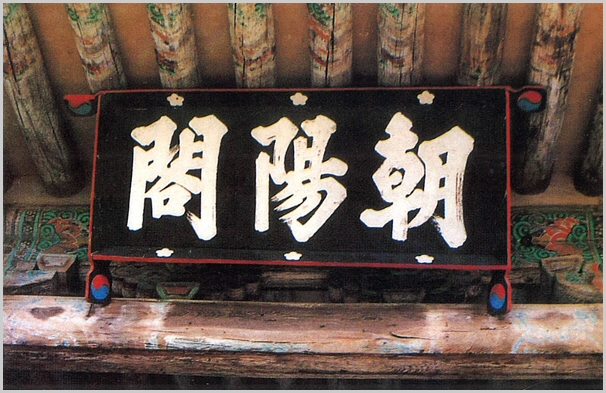 朝陽閣